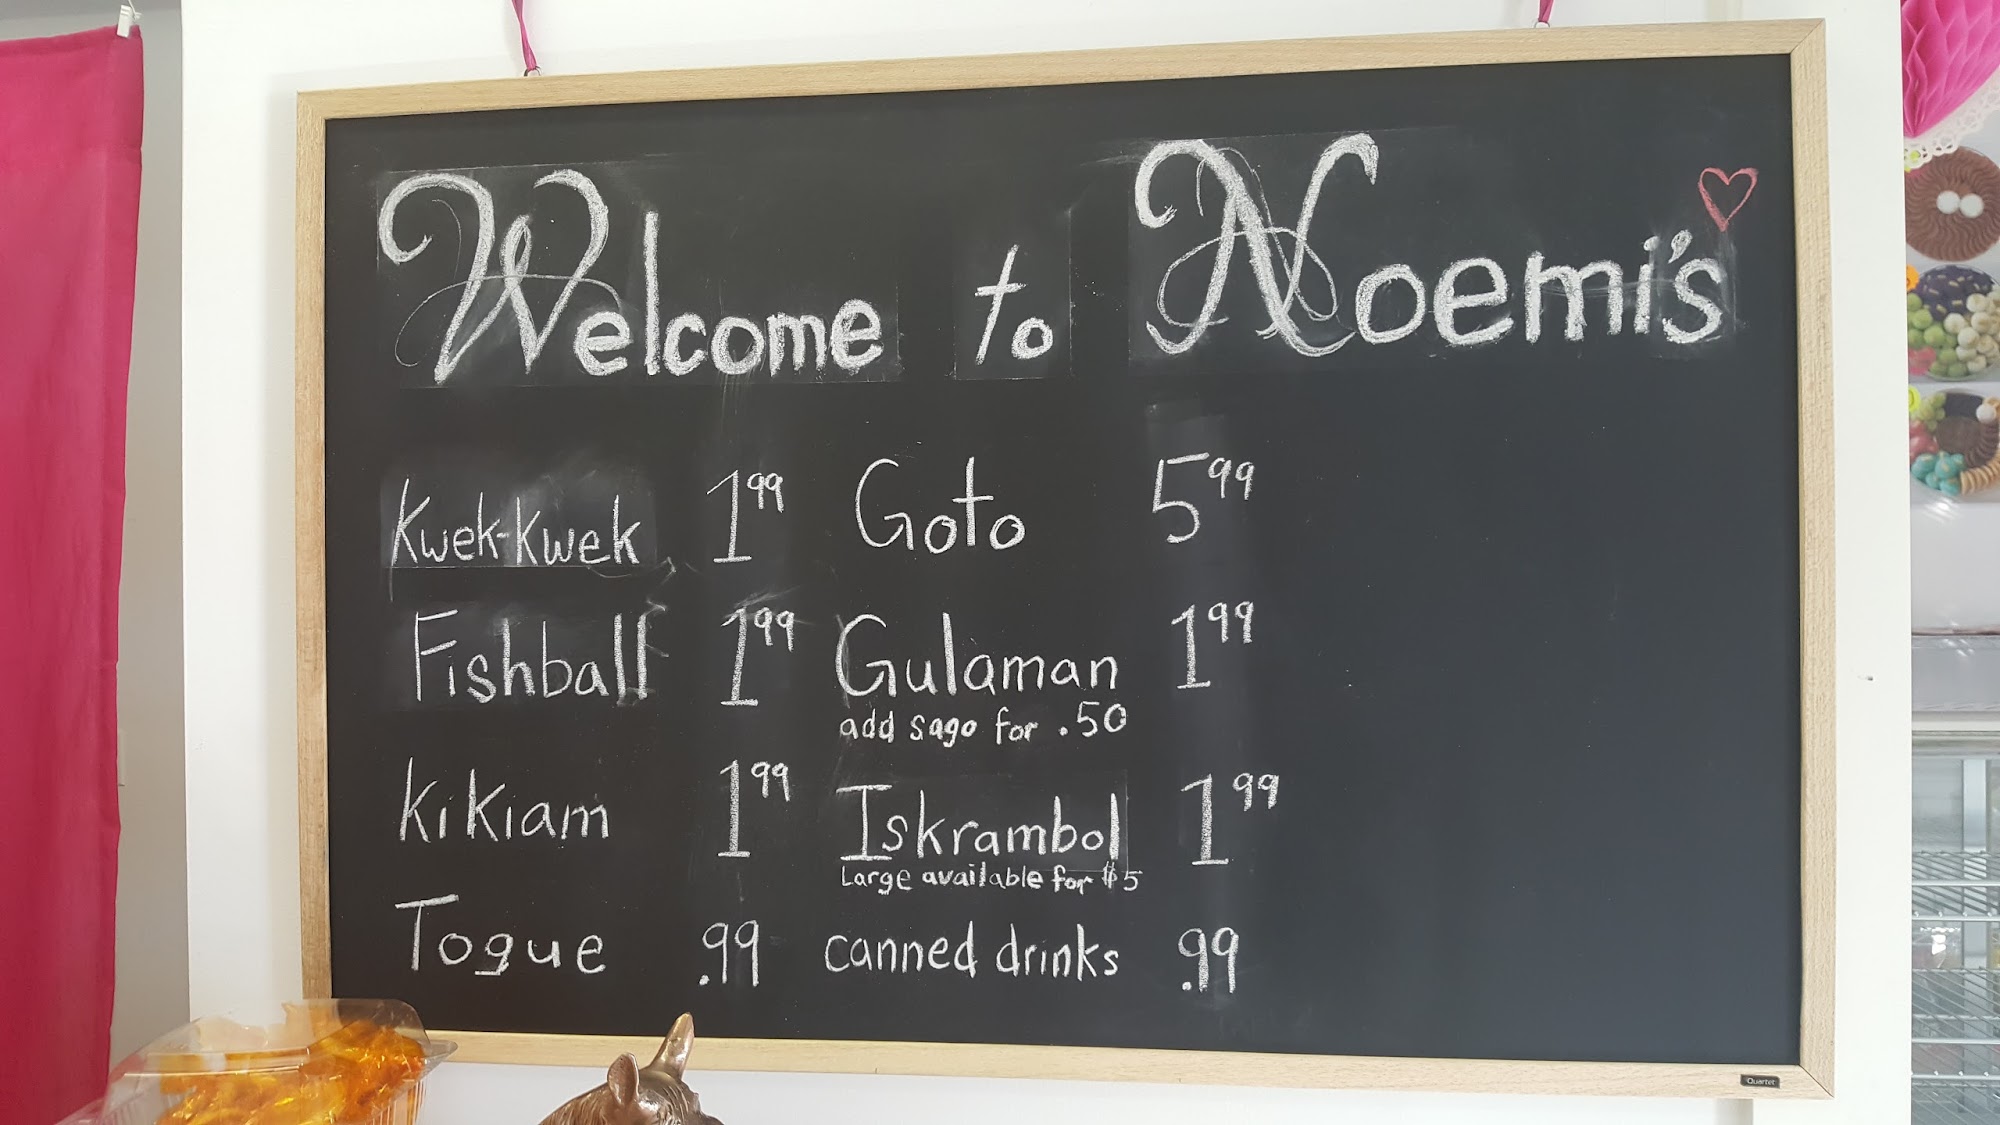 Welcome to Noemi's
Kwek-Kwek 1.99
Fishball 1.99
Kikiam 1.99
Togue .99
Goto 5.99
Gulaman 1.99
add sago for .50
Iskrambol 1.99
Large available for $5
canned drinks .99
Quartet